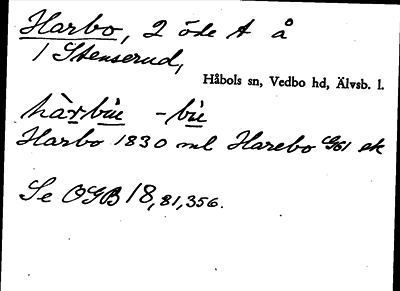 Harbo, 2 öde t å
1 Stenserud,
Håbols sn, Vedbo hd, Älvsb. l.
hàrbu -bu
Harbo 1830 ml Harebo G61 ek
Se OGB 18, 81, 356.